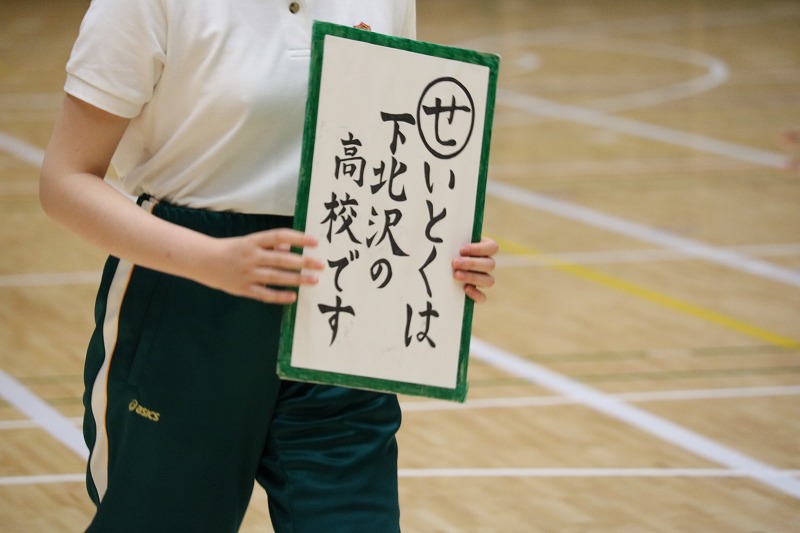 せいとくは
下北沢の
高校です
asics